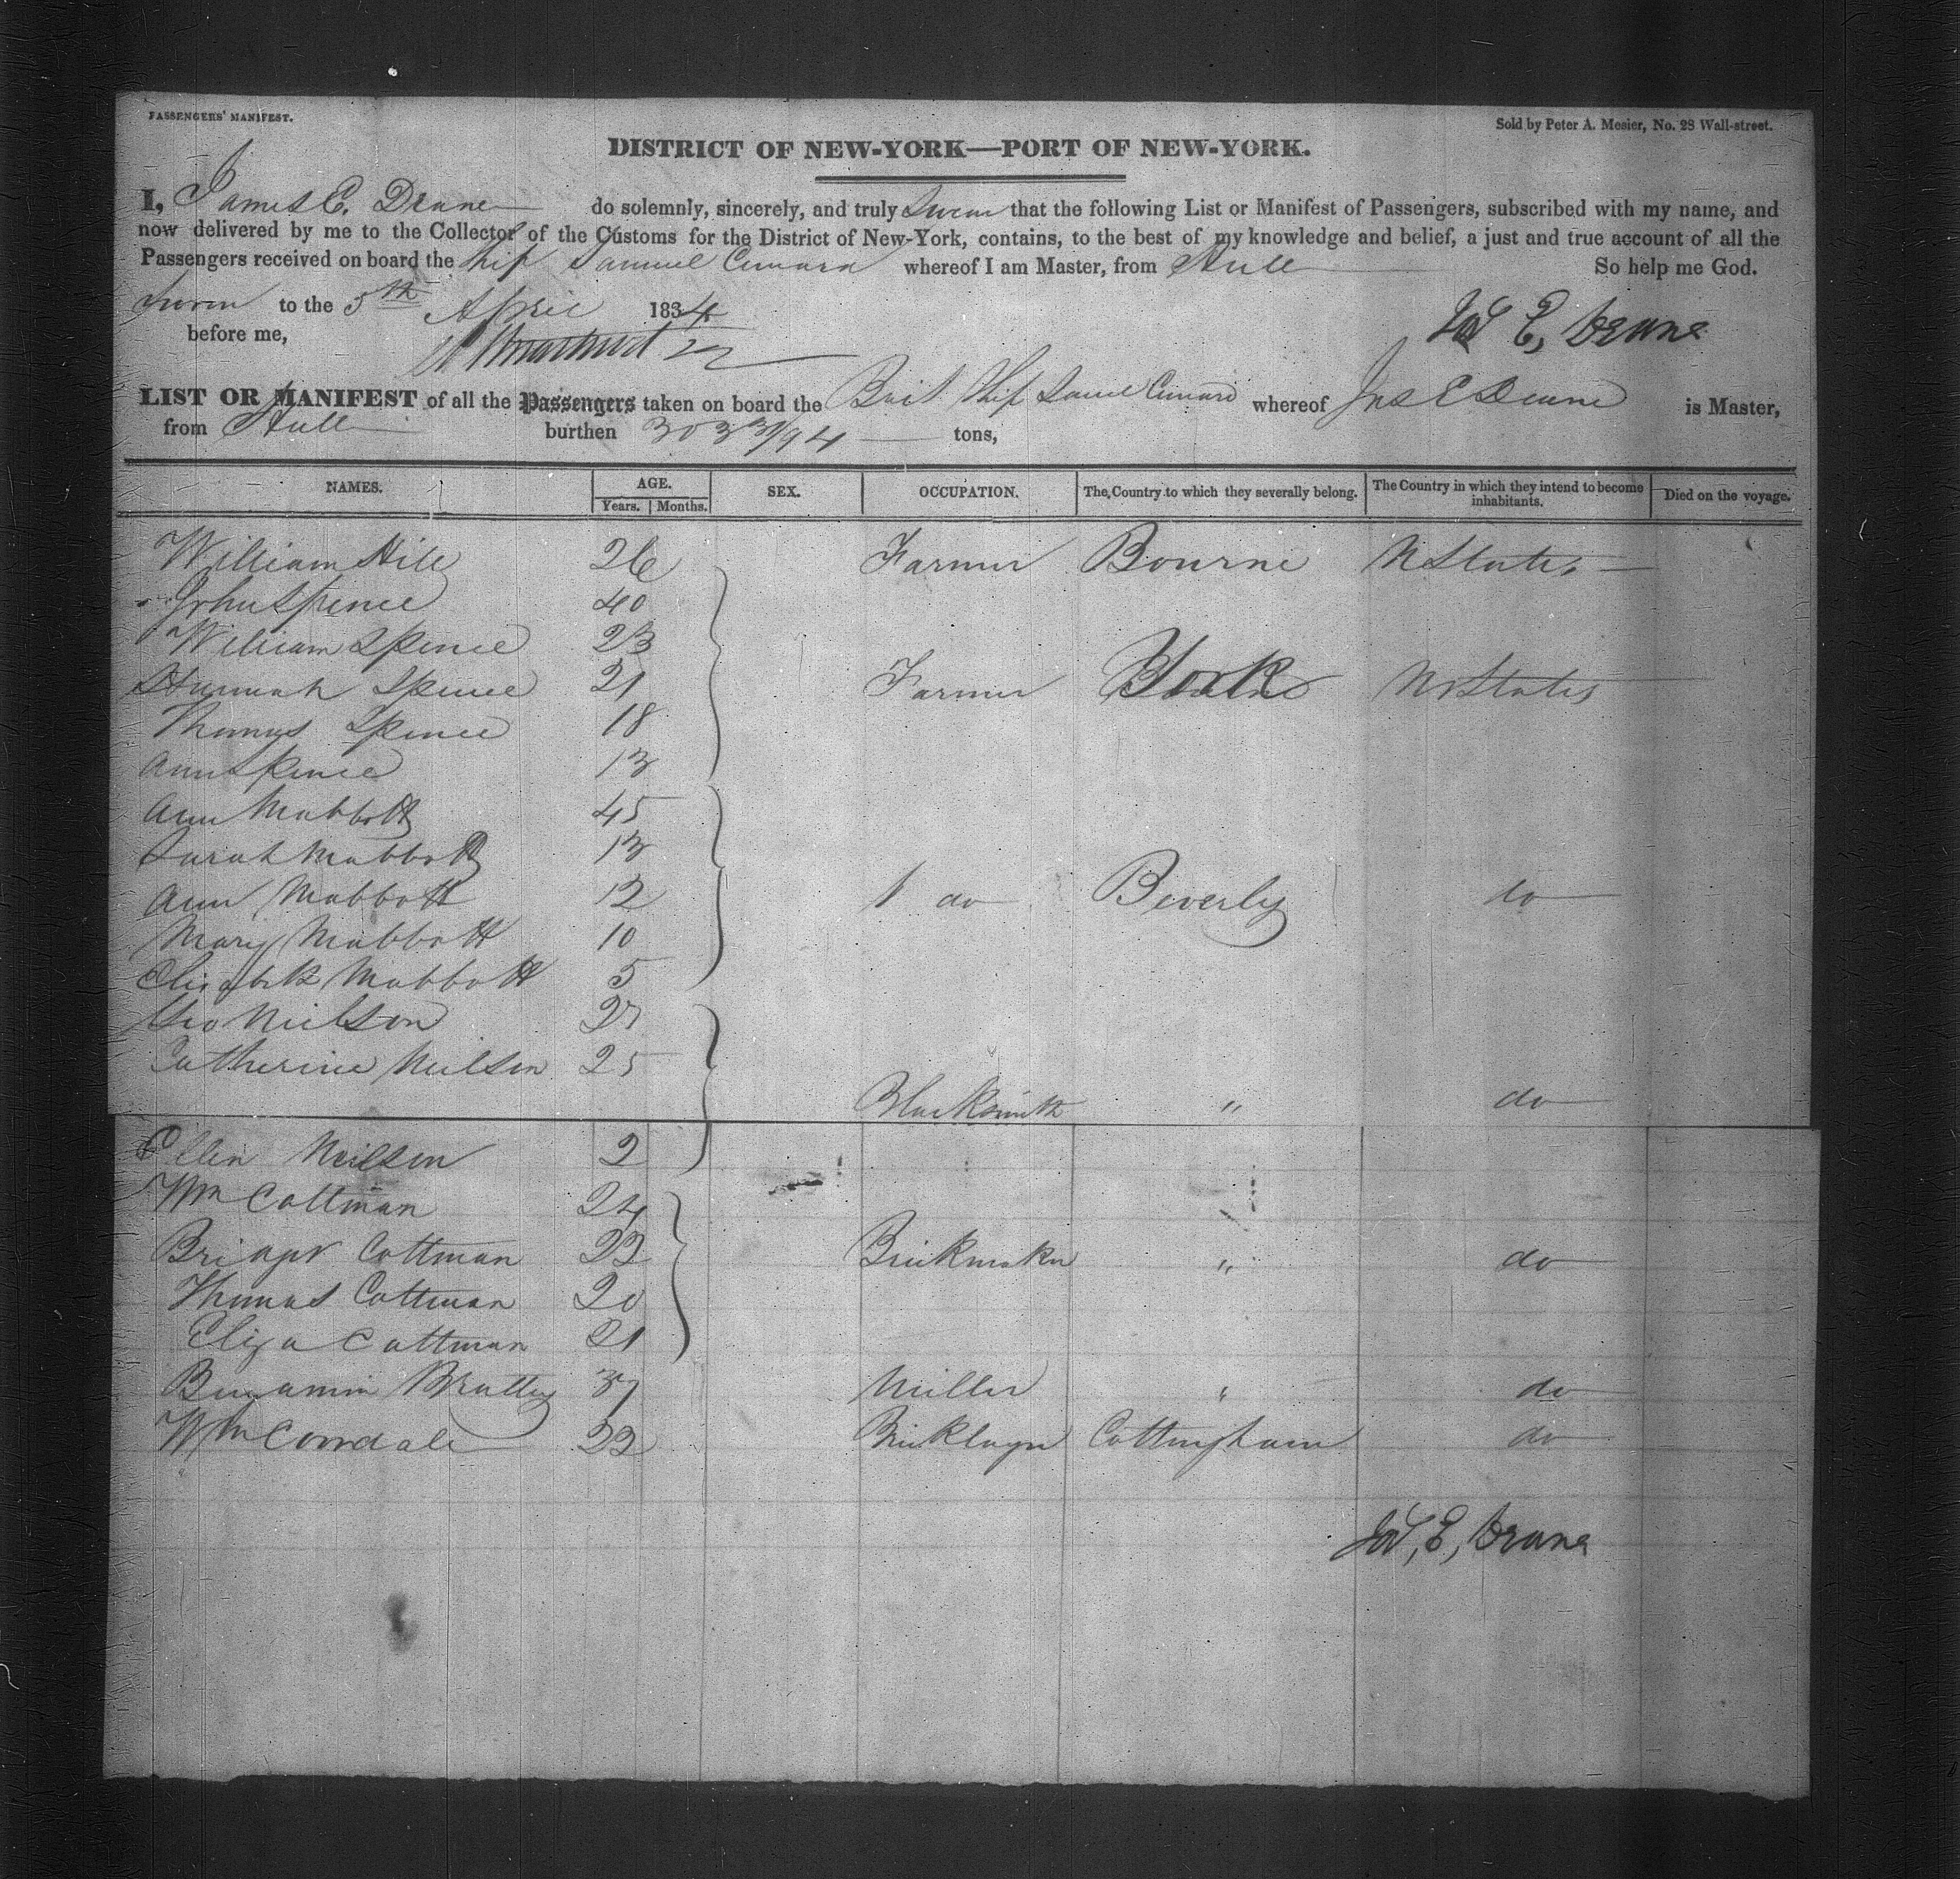 PASSENGERS' MANIFEST.
Sold by Peter A. Mesier, No. 28 Wall-street.
DISTRICT OF NEW-YORK—PORT OF NEW-YORK.
I, James E. Drane do solemnly, sincerely, and truly Swear that the following List or Manifest of Passengers, subscribed with my name, and
now delivered by me to the Collector of the Customs for the District of New-York, contains, to the best of my knowledge and belief, a just and true account of all the
Passengers received on board the Ship Samuel Cunard whereof I am Master, from Hull So help me God.
Sworn to the 5th April 1834
before me,
Jas E, Drane
LIST OR MANIFEST of all the Passengers taken on board the Brit Ship Saml Cunard whereof Jas E Drane is Master,
from Hull burthen 303 31/94 tons,
NAMES. AGE. SEX. OCCUPATION. The Country to which they severally belong. The Country in which they intend to become inhabitants. Died on the voyage.
Years. Months.
William Hill 26 Farmer Bourne U States
John Spence 40
William Spence 23
Hannah Spence 21 Farmer York U States
Thomas Spence 18
Ann Spence 13
Ann Mabbott 45
Sarah Mabbott 13
Ann Mabbott 12 1 do Beverly do
Mary Mabbott 10
Elizabeth Mabbott 5
Geo Neilson 27
Catherine Neilson 25
Blacksmith " do
Ellen Neilson 2
Wm Cottman 24
Cottman 22 Brickmaker " do
Thomas Cottman 20
Eliza Cottman 21
Benjamin Brattey 37 Miller " do
Wm 22 Bricklayer Cottingham do
Jas, E, Drane